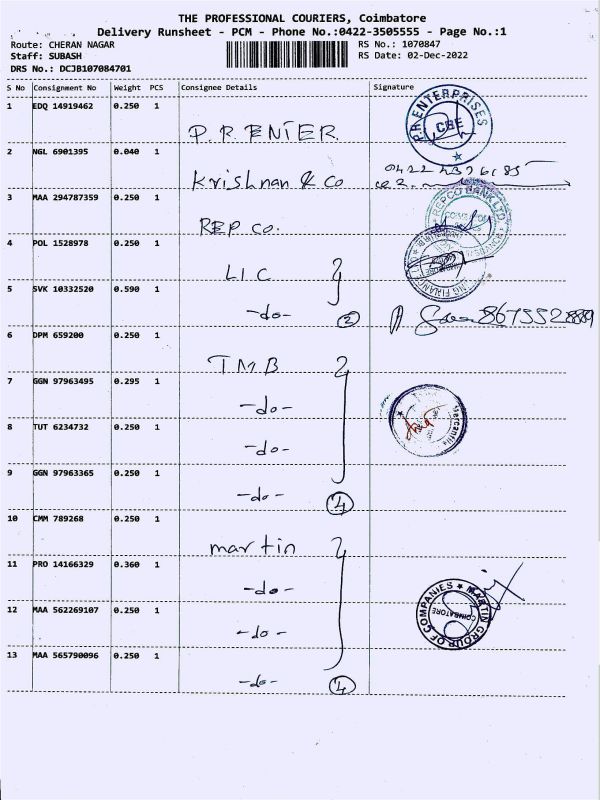 THE PROFESSIONAL COURIERS, Coimbatore
Delivery Runsheet - PCM - Phone No.:0422-3505555 - Page No.:1
Route: CHERAN NAGAR
RS No.: 1070847
Staff: SUBASH
RS Date: 02-Dec-2022
DRS No.: DCJB107084701
S No Consignment No Weight PCS Consignee Details Signature
1 EDQ 14919462 0.250 1
P.R.ENTER.
P.R.ENTERPRISES
CBE
2 NGL 6901395 0.040 1
Krishnan & Co
3 MAA 294787359 0.250 1
REPCO BANK LTD
REP CO.
4 POL 1528978 0.250 1
LIC
5 SVK 10332520 0.590 1
-do- 2
6 DPM 659200 0.250 1
TMB
7 GGN 97963495 0.295 1
-do-
Mercantile
8 TUT 6234732 0.250 1
-do-
9 GGN 97963365 0.250 1
-do- 4
10 CMM 789268 0.250 1
martin
11 PRO 14166329 0.360 1
-do-
MARTIN GROUP OF COMPANIES
COIMBATORE
12 MAA 562269107 0.250 1
-do-
13 MAA 565790096 0.250 1
-do- 4